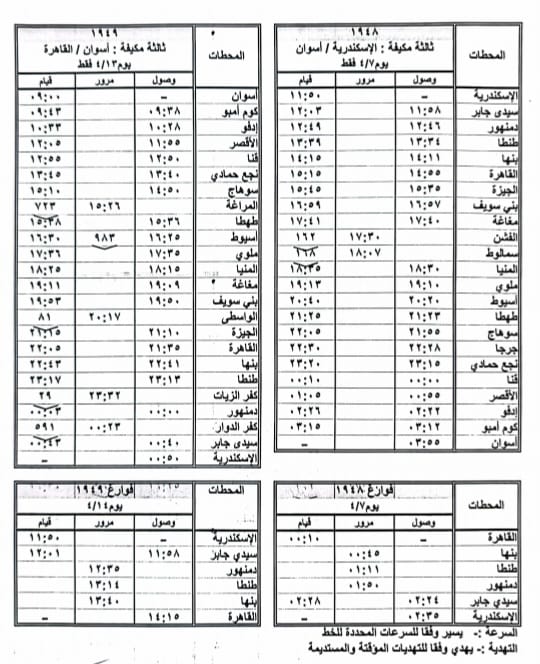 ١٩٤٨
ثالثة مكيفة : الإسكندرية / أسوان
يوم ٤/٧ فقط
المحطات وصول مرور قيام
الإسكندرية – ١١:٥٠
سيدى جابر ١١:٥٨ ١٢:٠٣
دمنهور ١٢:٤٦ ١٢:٤٩
طنطا ١٣:٣٤ ١٣:٣٩
بنها ١٤:١١ ١٤:١٥
القاهرة ١٤:٥٥ ١٥:١٥
الجيزة ١٥:٣٥ ١٥:٤٠
بني سويف ١٦:٥٧ ١٦:٥٩
مغاغة ١٧:٤٠ ١٧:٤١
الفشن ١٧:٣٠ ١٦٢
سمالوط ١٨:٠٧ ١٦٨
المنيا ١٨:٣٠ ١٨:٣٥
ملوي ١٩:١٠ ١٩:١٣
أسيوط ٢٠:٢٠ ٢٠:٤٠
طهطا ٢١:٢٣ ٢١:٢٥
سوهاج ٢١:٥٥ ٢٢:٠٥
جرجا ٢٢:٢٨ ٢٢:٣٠
نجع حمادي ٢٣:١٥ ٢٣:٢٠
قنا ٠٠:٠٠ ٠٠:١٠
الأقصر ٠٠:٥٥ ٠١:٠٥
إدفو ٠٢:٢٢ ٠٢:٢٦
كوم أمبو ٠٣:١٢ ٠٣:١٥
أسوان ٠٣:٥٥ –
١٩٤٩
ثالثة مكيفة : أسوان / القاهرة
يوم ٤/١٣ فقط
المحطات وصول مرور قيام
أسوان – ٠٩:٠٠
كوم أمبو ٠٩:٣٨ ٠٩:٤٣
إدفو ١٠:٢٨ ١٠:٣٣
الأقصر ١١:٥٥ ١٢:٠٥
قنا ١٢:٥٠ ١٢:٥٥
نجع حمادي ١٣:٤٠ ١٣:٤٥
سوهاج ١٤:٥٠ ١٥:١٠
المراغة ١٥:٢٦ ٧٢٣
طهطا ١٥:٣٦ ١٥:٣٨
أسيوط ١٦:٢٥ ٩٨٣ ١٦:٣٠
ملوي ١٧:٣٥ ١٧:٣٦
المنيا ١٨:١٥ ١٨:٢٥
مغاغة ١٩:٠٩ ١٩:١١
بني سويف ١٩:٥٠ ١٩:٥٣
الواسطى ٢٠:١٧ ٨١
الجيزة ٢١:١٠ ٢١:١٥
القاهرة ٢١:٣٥ ٢٢:٠٥
بنها ٢٢:٤١ ٢٢:٤٣
طنطا ٢٣:١٣ ٢٣:١٧
كفر الزيات ٢٣:٣٢ ٢٩
دمنهور ٠٠:٠٠ ٠٠:٠٣
كفر الدوار ٠٠:٢٣ ٥٩١
سيدى جابر ٠٠:٤٠ ٠٠:٤٣
الإسكندرية ٠٠:٥٠ –
فوارغ ١٩٤٨
يوم ٤/٧
المحطات وصول مرور قيام
القاهرة – ٠٠:١٠
بنها ٠٠:٤٥
طنطا ٠١:١١
دمنهور ٠١:٥٠
سيدي جابر ٠٢:٢٤ ٠٢:٢٨
الإسكندرية ٠٢:٣٥ –
السرعة :- يسير وفقا للسرعات المحددة للخط
التهدية :- يهدي وفقا للتهديات المؤقتة والمستديمة
فوارغ ١٩٤٩
يوم ٤/١٤
المحطات وصول مرور قيام
الإسكندرية – ١١:٥٠
سيدي جابر ١١:٥٨ ١٢:٠١
دمنهور ١٢:٣٥
طنطا ١٣:١٤
بنها ١٣:٤٠
القاهرة ١٤:١٥ –